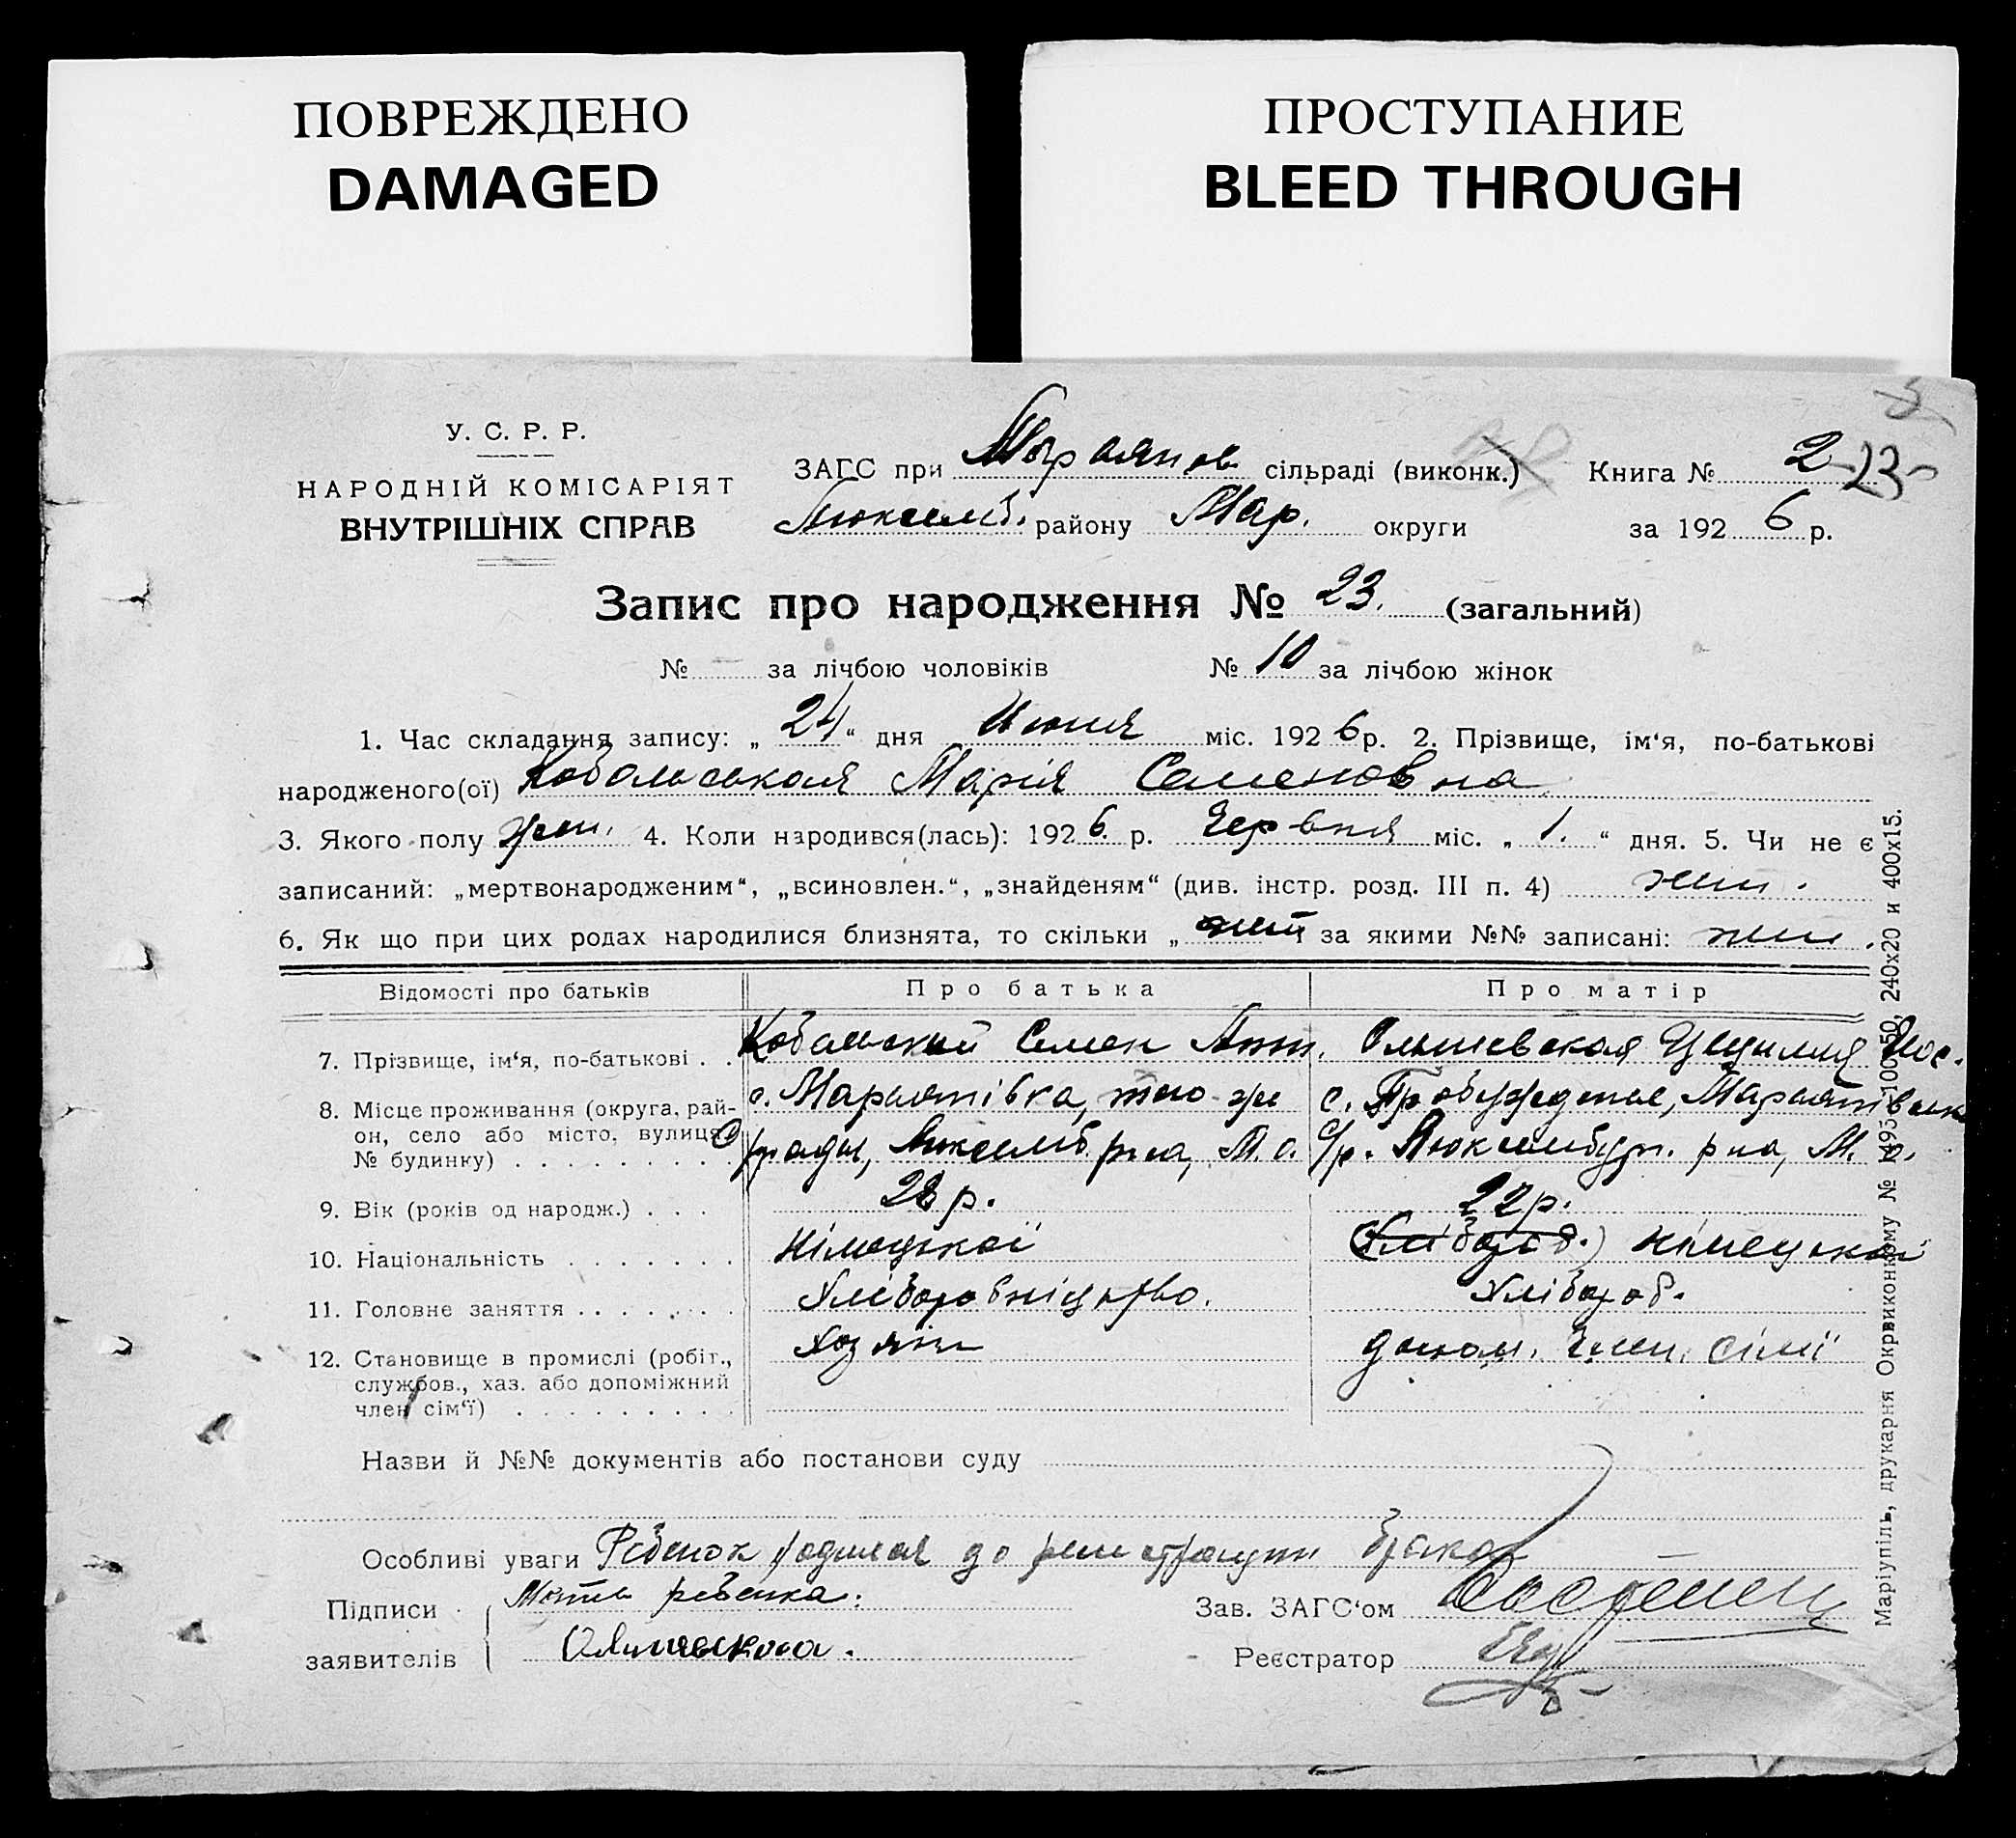 ПОВРЕЖДЕНО
DAMAGED
ПРОСТУПАНИЕ
BLEED THROUGH
У. С. Р. Р.
НАРОДНІЙ КОМІСАРІЯТ
ВНУТРІШНІХ СПРАВ
ЗАГС при Марянов. сільраді (виконк.) Книга № 2 23
Люксемб. району Мар. округи за 1926 р.
Запис про народження № 23. (загальний)
№ за лічбою чоловіків № 10 за лічбою жінок
1. Час складання запису: „ 24 “ дня Июня міс. 1926 р. 2. Прізвище, ім‘я, по-батькові
народженого(ої) Кобальская Марія Семеновна
3. Якого полу жен. 4. Коли народився(лась): 1926. р. Червня міс. „ 1. “ дня. 5. Чи не є
записаний: „мертвонародженим“, „всиновлен.“, „знайденям“ (див. інстр. розд. III п. 4)
6. Як що при цих родах народилися близнята, то скільки „ за якими №№ записані:
Відомості про батьків Про батька Про матір
7. Прізвище, ім‘я, по-батькові . . Кобальский Семен Антн. Ольшевская Цецилия Иос.
8. Місце проживання (округа, рай- с. Мар'янівка, тою же с. Пробуждение, Мар'янівськ
он, село або місто, вулиця, с/ради, Люксемб. р-на, М. о. с/р. Люксембур. р-на, М. о.
№ будинку) . . . . . . . .
9. Вік (років од народж.) . . . 28 р. 22 р.
10. Національність . . . . . . . німецької (Хлібороб.) німецької
11. Головне заняття . . . . . . Хліборобніцтво. Хлібороб.
12. Становище в промислі (робіт., Хозяїн допом. член. сімї
службов., хаз. або допоміжний
член сім‘ї) . . . . . . . . .
Назви й №№ документів або постанови суду
Особливі уваги Ребенок родился до регистрации брака
Підписи Мать ребенка: Зав. ЗАГС‘ом
заявителів Ольшевская. Реєстратор
Маріупіль, друкарня Окрвиконкому № 1495 100х50, 240х20 и 400х15.